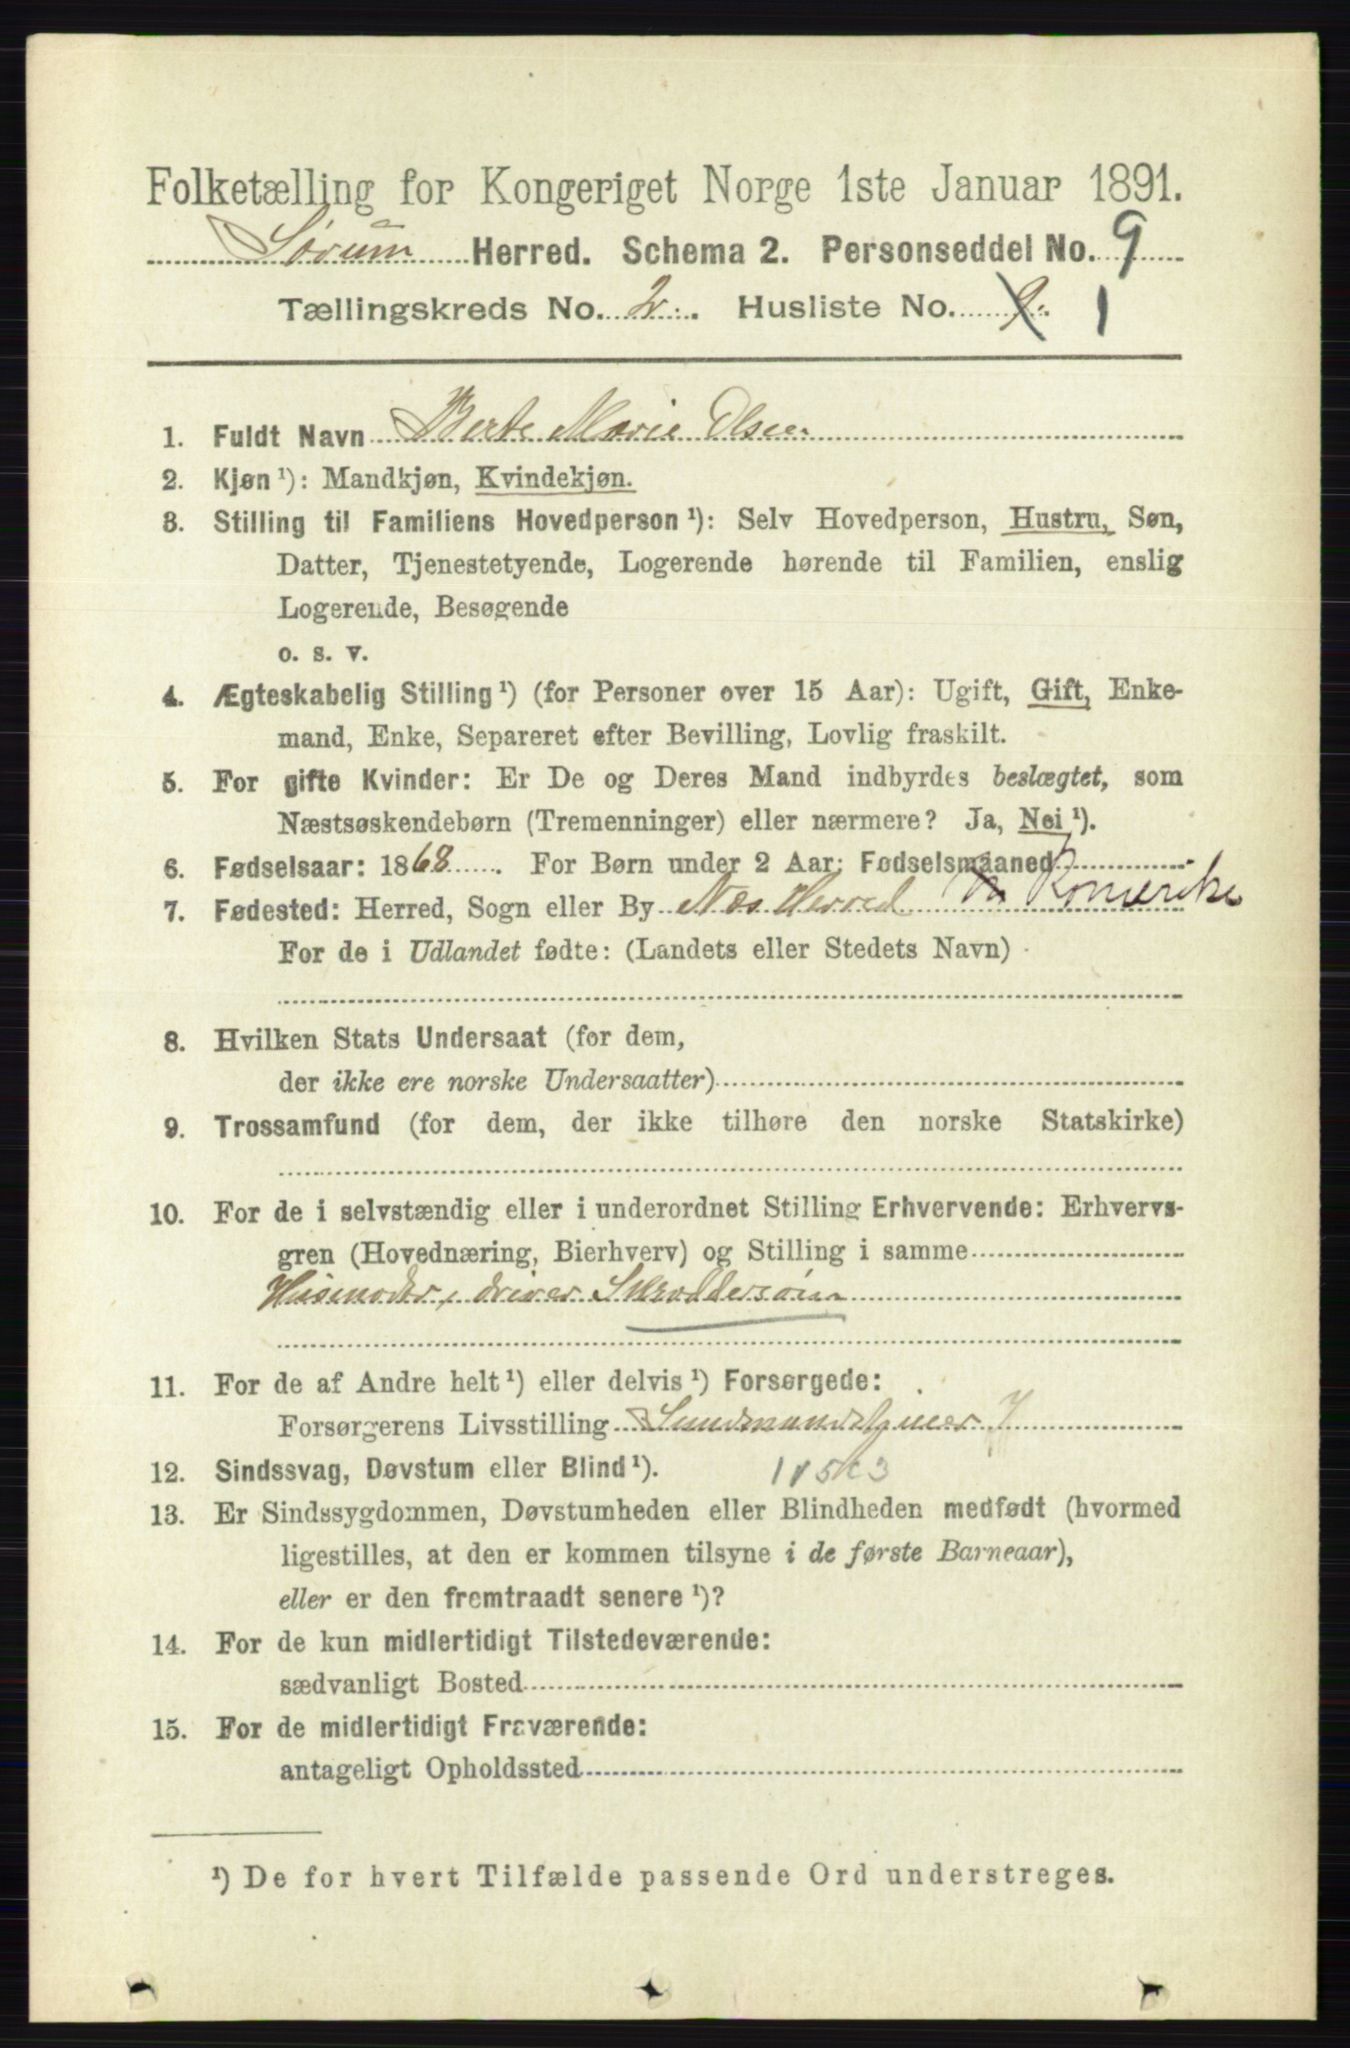 Folketælling for Kongeriget Norge 1ste Januar 1891.
Sørum Herred. Schema 2. Personseddel No. 9
Tællingskreds No. 2. Husliste No. 2. 1
1. Fuldt Navn Berte Marie Olsen
2. Kjøn ¹): Mandkjøn, Kvindekjøn.
3. Stilling til Familiens Hovedperson ¹): Selv Hovedperson, Hustru, Søn,
Datter, Tjenestetyende, Logerende hørende til Familien, enslig
Logerende, Besøgende
o. s. v.
4. Ægteskabelig Stilling ¹) (for Personer over 15 Aar): Ugift, Gift, Enke-
mand, Enke, Separeret efter Bevilling, Lovlig fraskilt.
5. For gifte Kvinder: Er De og Deres Mand indbyrdes beslægtet, som
Næstsøskendebørn (Tremenninger) eller nærmere? Ja, Nei ¹).
6. Fødselsaar: 1868. For Børn under 2 Aar: Fødselsmaaned
7. Fødested: Herred, Sogn eller By Næs Herred Romerike
For de i Udlandet fødte: (Landets eller Stedets Navn)
8. Hvilken Stats Undersaat (for dem,
der ikke ere norske Undersaatter)
9. Trossamfund (for dem, der ikke tilhøre den norske Statskirke)
10. For de i selvstændig eller i underordnet Stilling Erhvervende: Erhvervs-
gren (Hovednæring, Bierhverv) og Stilling i samme
Husmoder, driver Skræddersøm
11. For de af Andre helt ¹) eller delvis ¹) Forsørgede:
Forsørgerens Livsstilling
12. Sindssvag, Døvstum eller Blind ¹).
13. Er Sindssygdommen, Døvstumheden eller Blindheden medfødt (hvormed
ligestilles, at den er kommen tilsyne i de første Barneaar),
eller er den fremtraadt senere ¹)?
14. For de kun midlertidigt Tilstedeværende:
sædvanligt Bosted
15. For de midlertidigt Fraværende:
antageligt Opholdssted
¹) De for hvert Tilfælde passende Ord understreges.